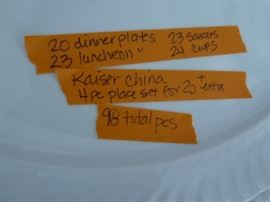 20 dinner plats 23 saucers
23 luncheon " 24 cups
Kaiser china
4 pc place set for 20 + extra
98 total pcs